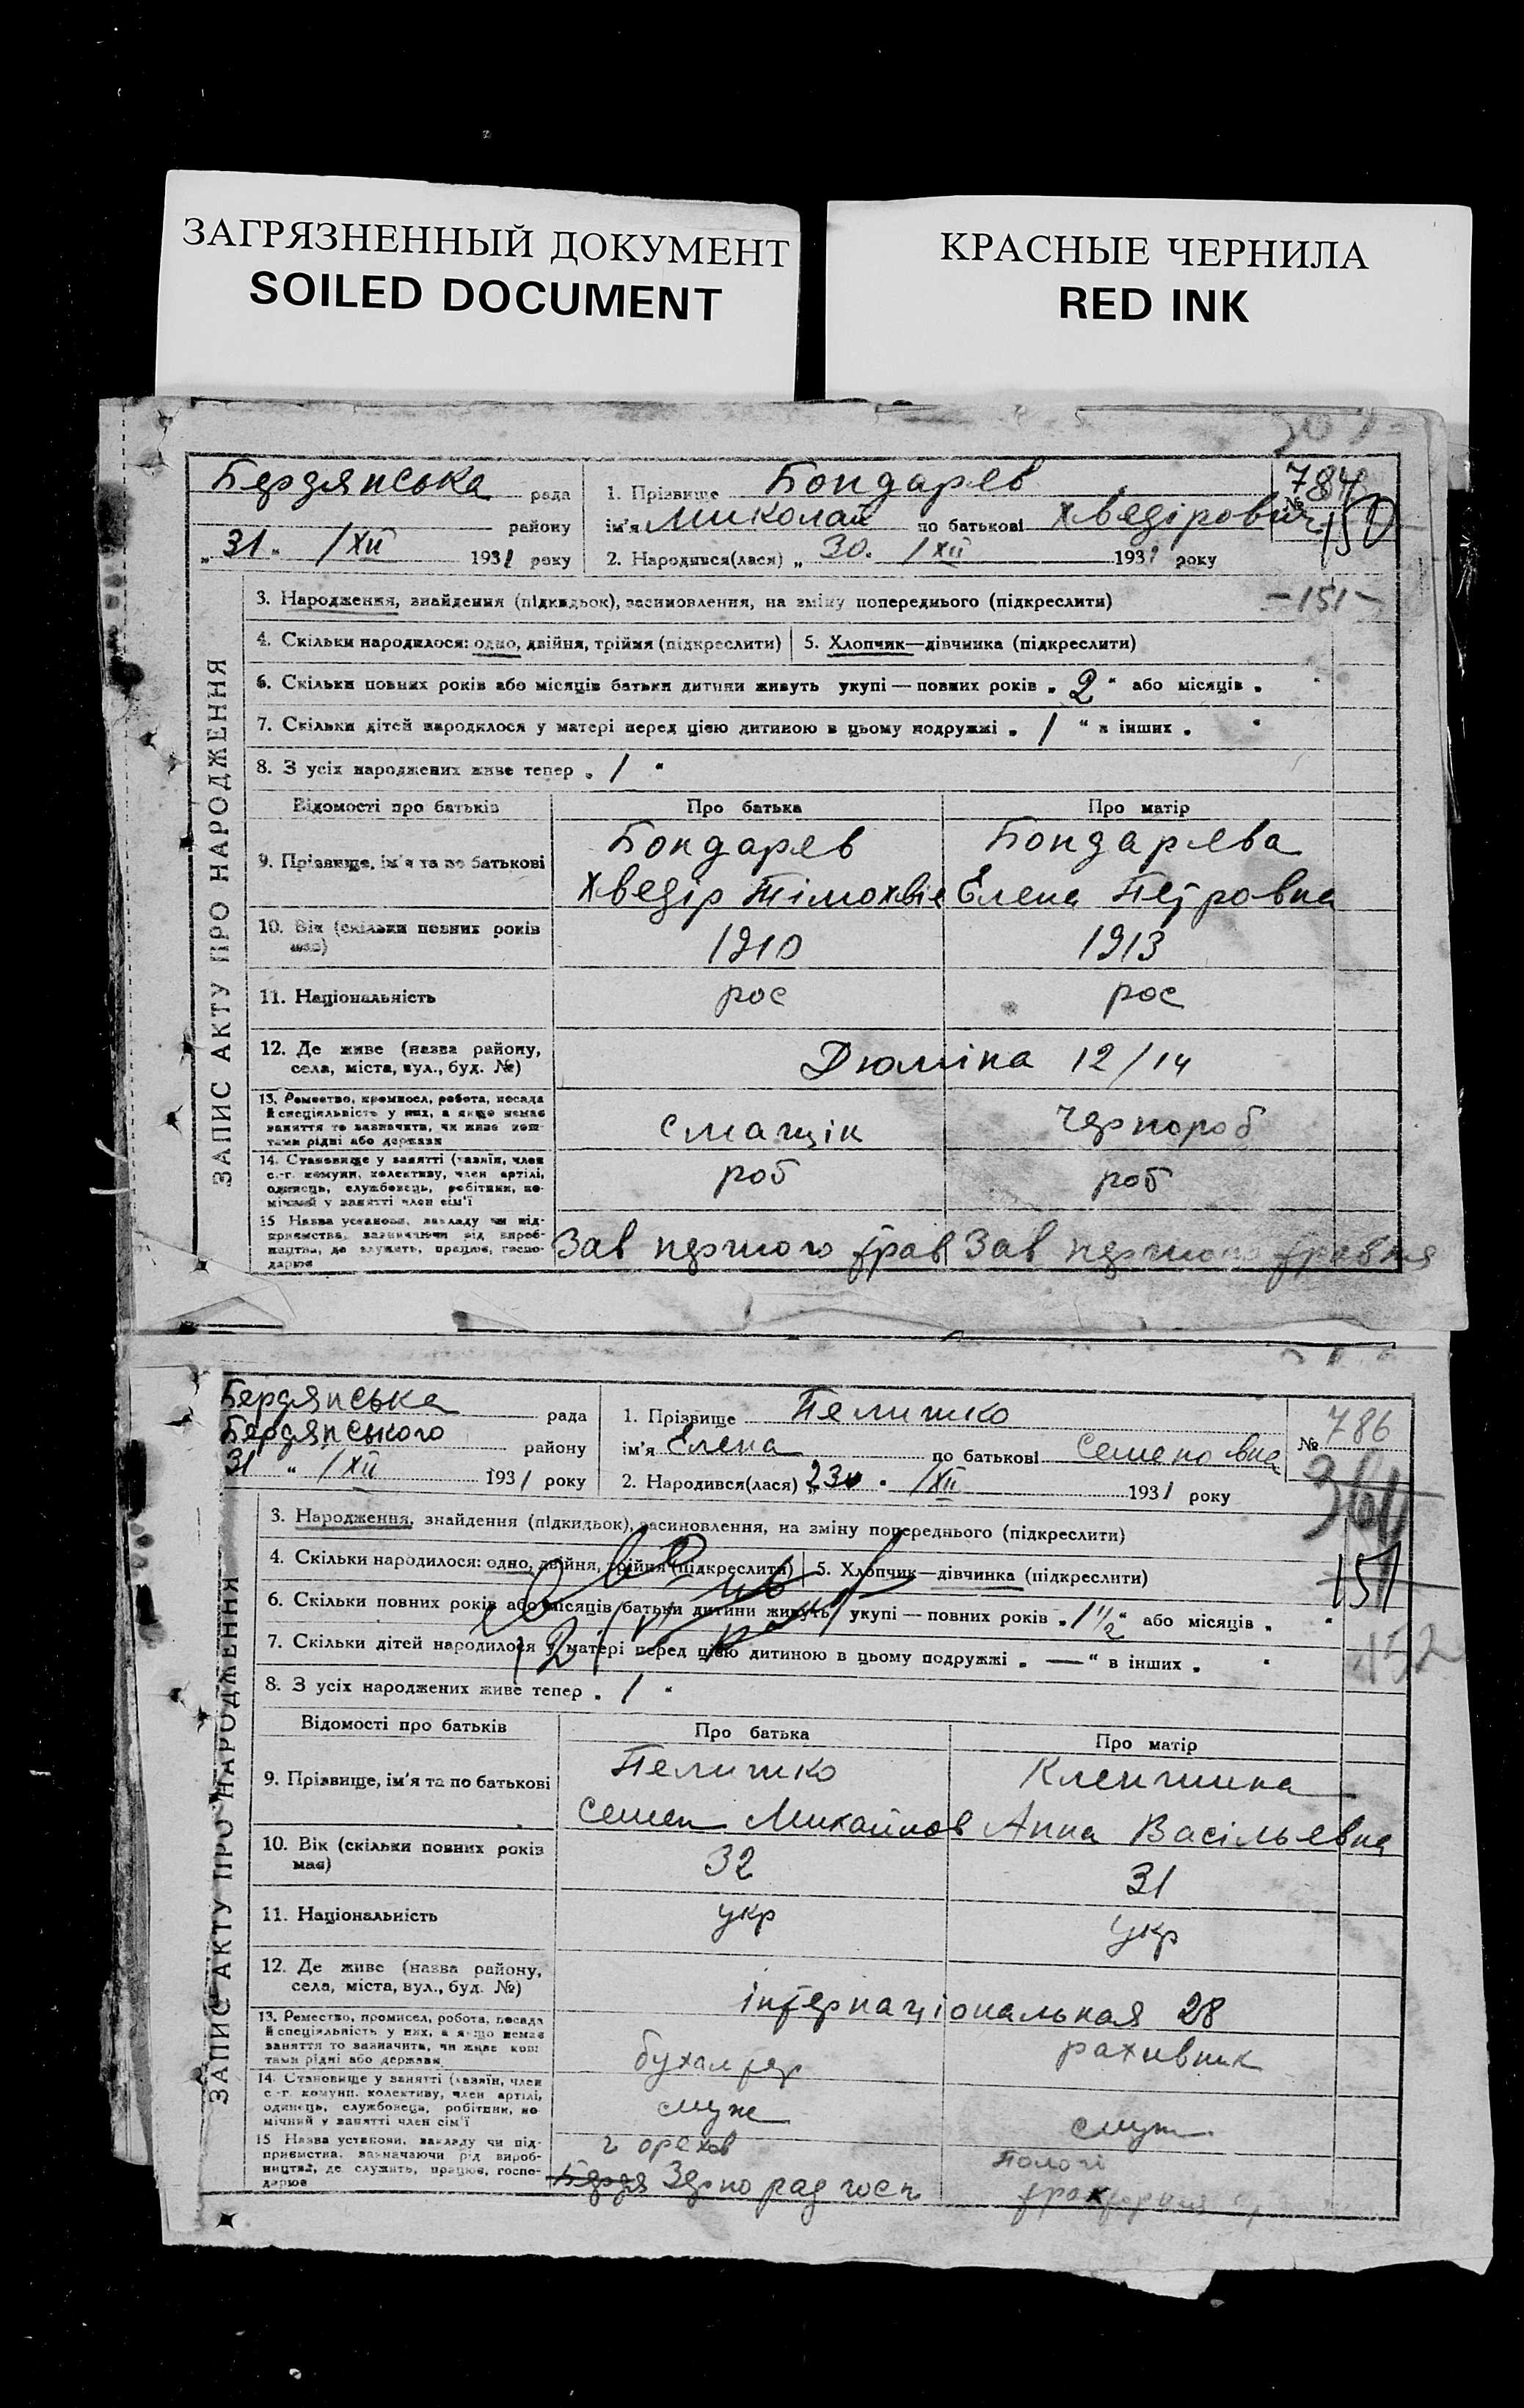 ЗАГРЯЗНЕННЫЙ ДОКУМЕНТ
SOILED DOCUMENT
КРАСНЫЕ ЧЕРНИЛА
RED INK
ЗАПИС АКТУ ПРО НАРОДЖЕННЯ
Бердянська рада
району
„31“ /XII 1931 року
1. Прізвище Бондарев
ім'я Миколай по батькові Хведірович
2. Народився(лася) „30. /XII 1931 року
№ 784
150
-151-
3. Народження, знайдення (підкидьок), засиновлення, на зміну попереднього (підкреслити)
4. Скільки народилося: одно, двійня, трійня (підкреслити) 5. Хлопчик—дівчинка (підкреслити)
6. Скільки повних років або місяців батьки дитини живуть укупі — повних років „2“ або місяців „ “
7. Скільки дітей народилося у матері перед цією дитиною в цьому подружжі „1“ в інших „ “
8. З усіх народжених живе тепер „1“
Відомості про батьків Про батька Про матір
9. Прізвище, ім'я та по батькові
Бондарев Бондарева
Хведір Тімохвіе Елена Петровна
10. Вік (скільки повних років має) 1910 1913
11. Національність рос рос
12. Де живе (назва району,
села, міста, вул., буд. №) Дюміна 12/14
13. Ремество, промисел, робота, посада
й спеціяльність у них, а якщо немає
заняття то зазначити, чи живе кош-
тами рідні або держави
смащік Чернороб
14. Становище у занятті (хазяїн, член
с.-г. комуни, колективу, член артілі,
одинець, службовець, робітник, по-
мічний у занятті член сім'ї
роб роб
15 Назва установи, закладу чи під-
приємства, зазначаючи рід вироб-
ництва, де служить, працює, госпо-
дарює
Зав першого трав Зав першого травня
ЗАПИС АКТУ ПРО НАРОДЖЕННЯ
Бердянська рада
Бердянського району
31 “ /XII 1931 року
1. Прізвище Пелишко
ім'я Елена по батькові Семеновна
2. Народився(лася) „23 “ /XII 1931 року
№ 786
361
151
152
3. Народження, знайдення (підкидьок), засиновлення, на зміну попереднього (підкреслити)
4. Скільки народилося: одно, двійня, трійня (підкреслити) 5. Хлопчик—дівчинка (підкреслити)
6. Скільки повних років або місяців батьки дитини живуть укупі — повних років „1 1/2“ або місяців „ “
7. Скільки дітей народилося у матері перед цією дитиною в цьому подружжі „—“ в інших „ “
8. З усіх народжених живе тепер „1“
Відомості про батьків Про батька Про матір
9. Прізвище, ім'я та по батькові
Пелишко Кленшина
Семен Михайлов Анна Васільевна
10. Вік (скільки повних років
має) 32 31
11. Національність укр укр
12. Де живе (назва району,
села, міста, вул., буд. №) інтернаціональная 28
13. Ремество, промисел, робота, посада
й спеціяльність у них, а якщо немає
заняття то зазначити, чи живе кош-
тами рідні або держави
бухалтер рахивник
14. Становище у занятті (хазяїн, член
с.-г. комуни, колективу, член артілі,
одинець, службовець, робітник, по-
мічний у занятті член сім'ї
служ служ
15 Назва установи, закладу чи під-
приємства, зазначаючи рід вироб-
ництва, де служить, працює, госпо-
дарює
г орехов Пологі
Бердя Зерно рад госп